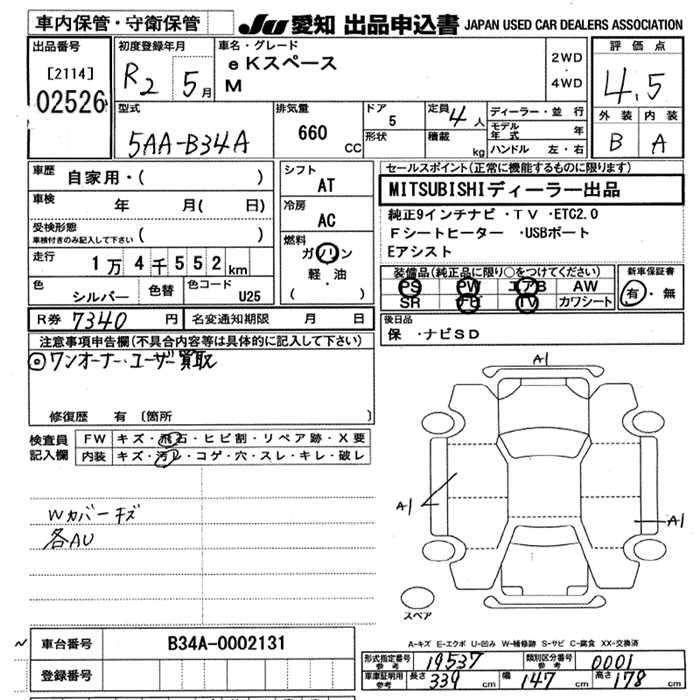 車内保管・守衛保管 JU 愛知 出品申込書 JAPAN USED CAR DEALERS ASSOCIATION
出品番号
[2114]
02526
初度登録年月
R2 5月
車名・グレード
eKスペース
M
2WD
・
4WD
評価点
4.5
外装 内装
B A
型式
5AA-B34A
排気量
660
CC
ドア
5
形状
定員 4人
積載 kg
ディーラー・並行
モデル年式 年
ハンドル 左・右
車歴 自家用・( )
車検 年 月( 日)
受検形態
車検付きのみ記入して下さい ( )
走行 1万4千552km
色 シルバー 色替 色コード U25
シフト
AT
冷房
AC
燃料
ガソリン
軽・油
( )
セールスポイント(正常に機能するものに限ります)
MITSUBISHIディーラー出品
純正9インチナビ ・TV ・ETC2.0
Fシートヒーター ・USBポート
Eアシスト
装備品(純正品に限り○をつけてください)
PS PW エアB AW
SR TV カワシート
新車保証書
有・無
R券 7340 円 名変通知期限 月 日
後日品
保 ・ナビSD
注意事項申告欄(不具合内容等は具体的に記入して下さい)
◎ワンオーナー・ユーザー買取
修復歴 有 〔箇所 〕
検査員
記入欄
FW キズ・飛石・ヒビ割・リペア跡・X要
内装 キズ・汚レ・コゲ・穴・スレ・キレ・破レ
Wカバーキズ
各AU
A1
A1
A1
スペア
A-キズ E-エクボ U-凹み W-補修跡 S-サビ C-腐食 XX-交換済
車台番号 B34A-0002131
登録番号
形式指定番号
参考
19537
類別区分番号
参考
0001
車庫証明用
参考
長さ 339 cm 幅 147 cm 高さ 178 cm